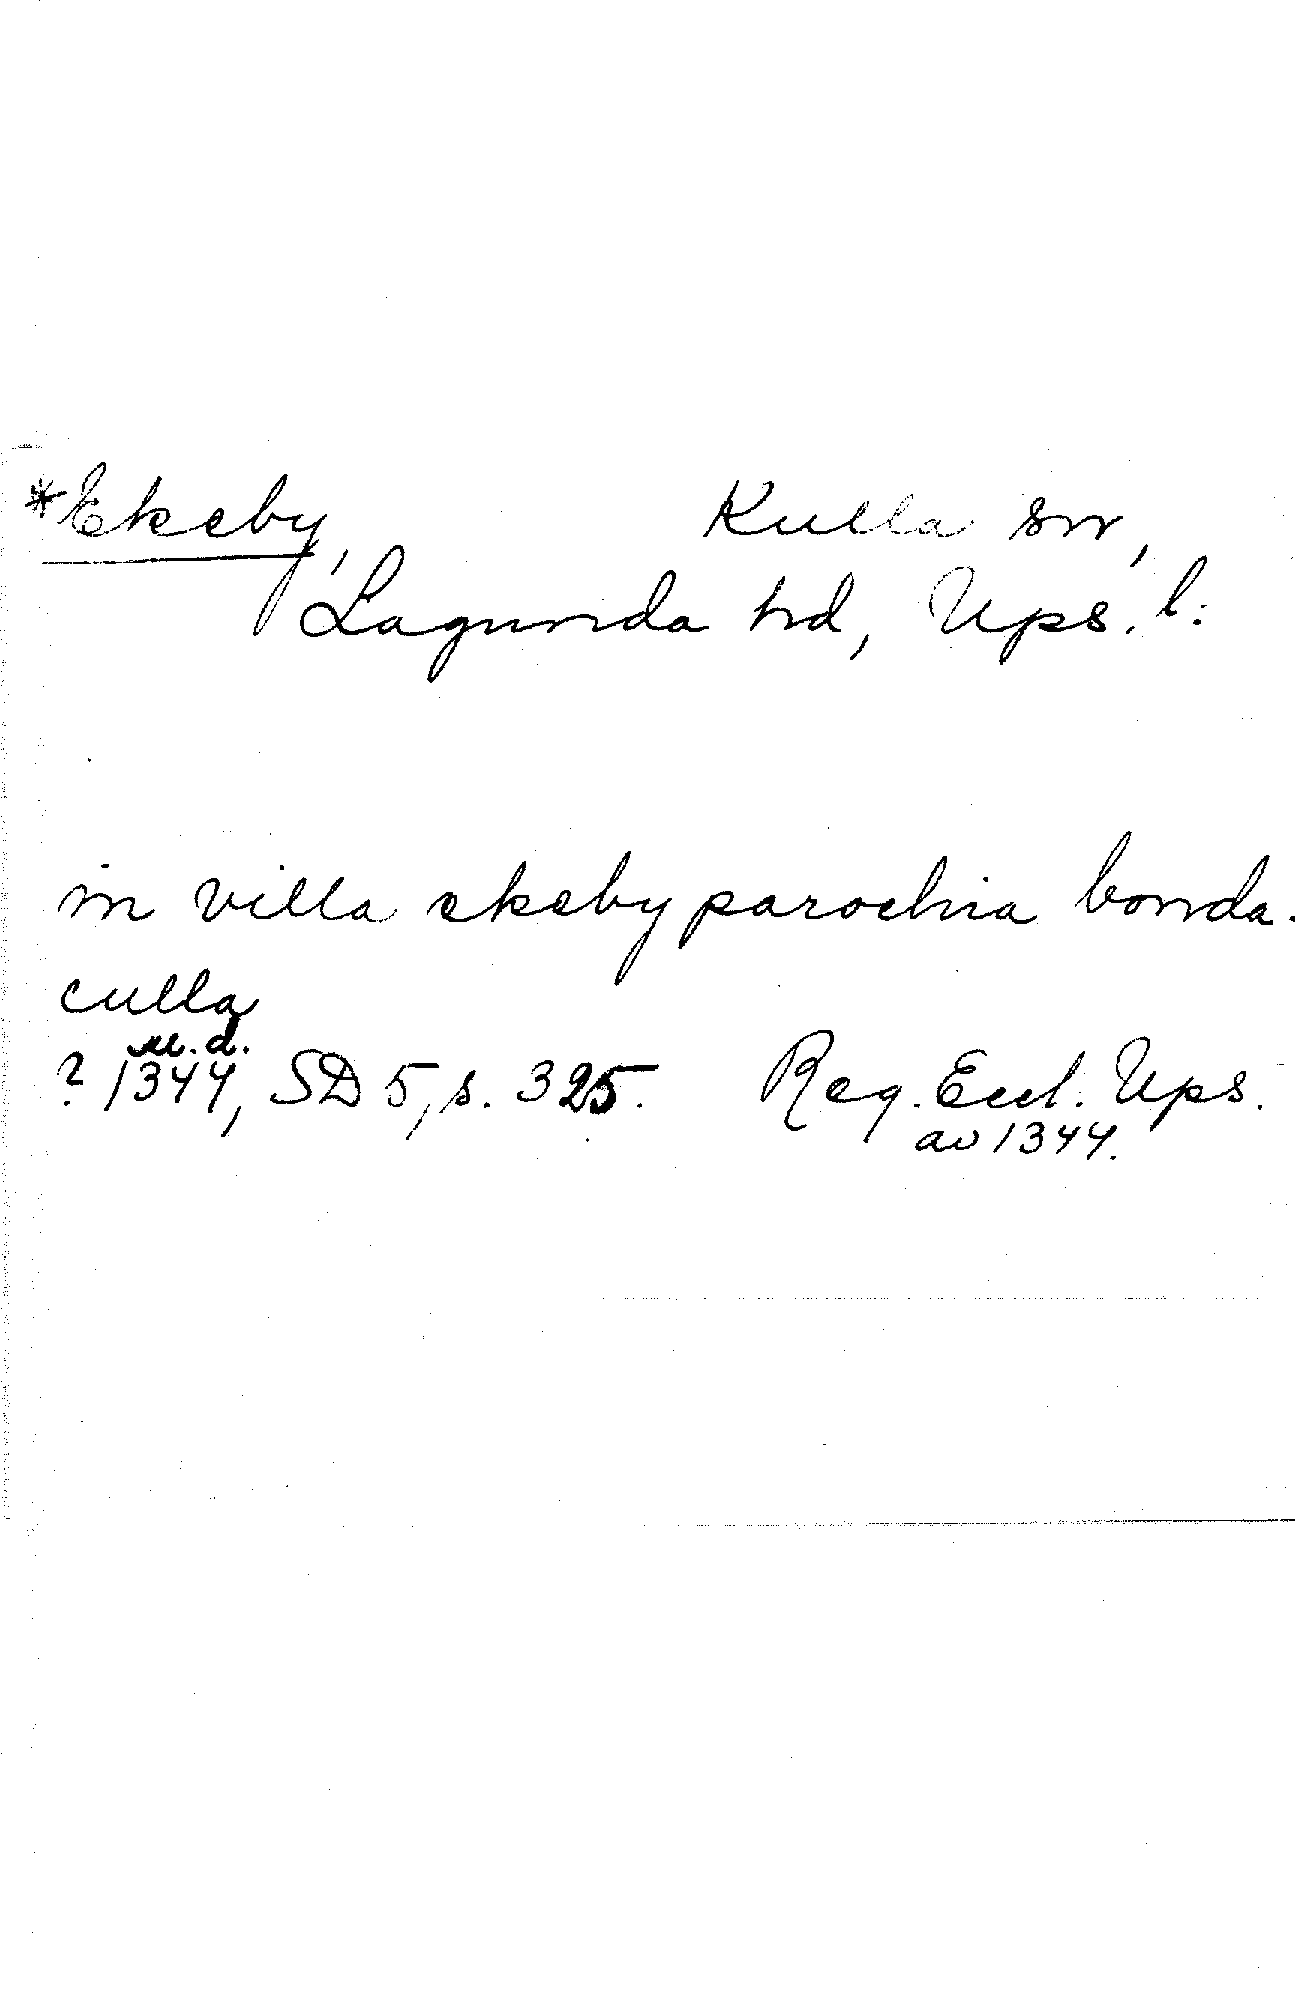 *Ekeby, Kulla sn,
Lagunda hd, Ups. l:
in villa ekeby parochia bonda.
culla
u.d.
? 1344, SD 5, s. 325. Reg. Eccl. Ups.
av 1344.